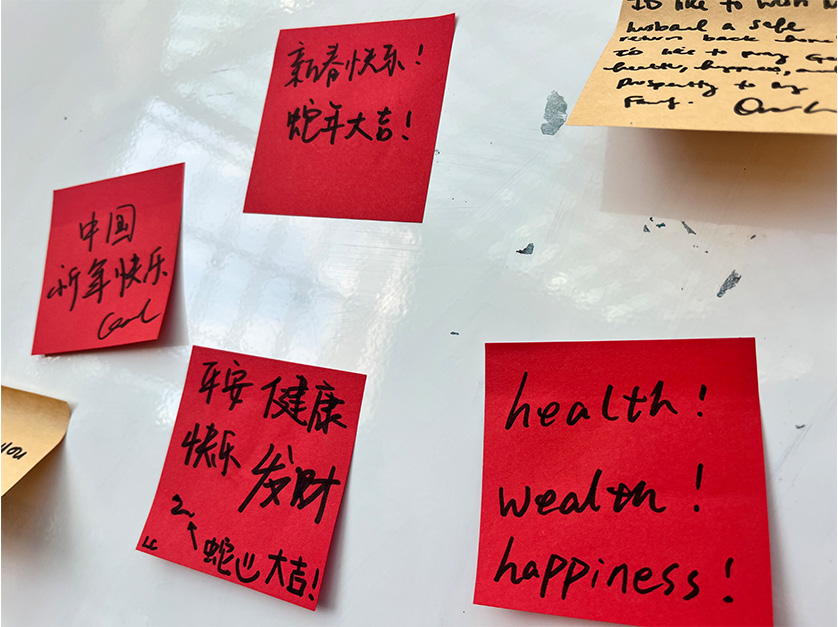 新春快乐!
蛇年大吉!
to like to wish
husband a safe
return back home
to like to pray
health, happiness, and
Prosperity to my
Famy.
中国
新年快乐
平安 健康
快乐 发财
蛇 大吉!
you
health!
wealth!
happiness!